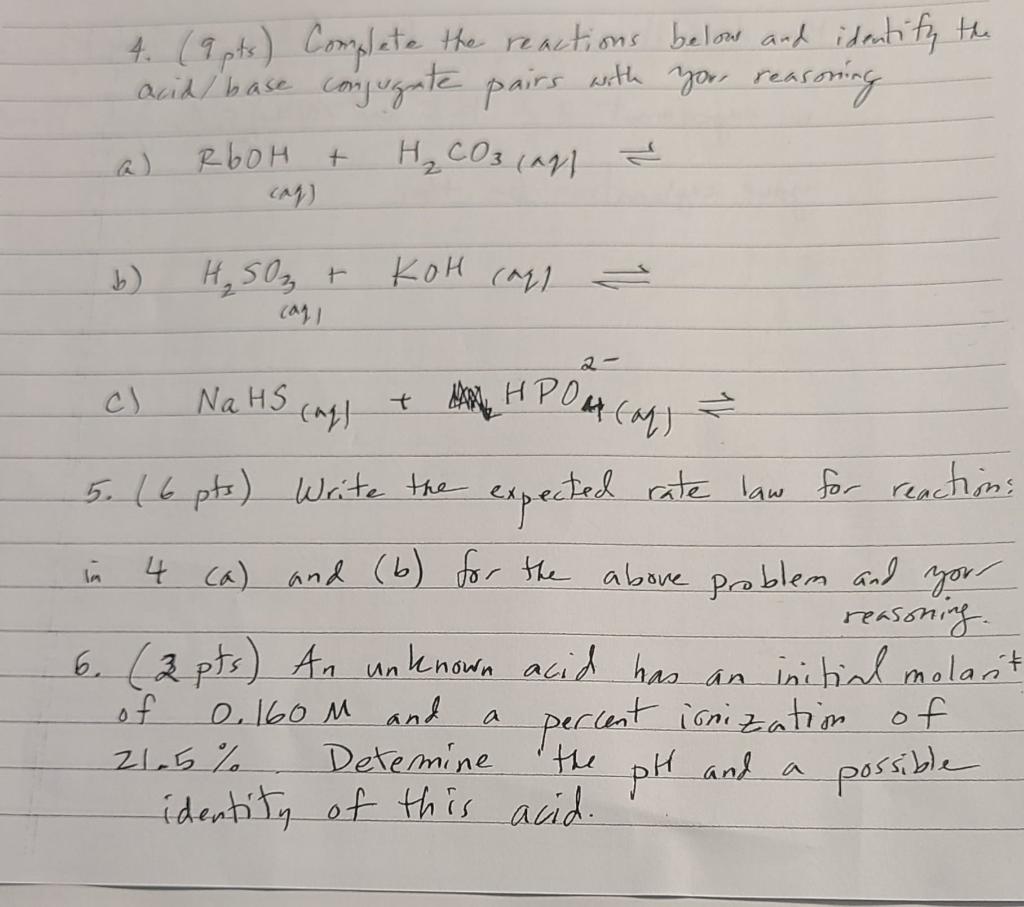 4. (9 pts) Complete the reactions below and identify the
acid/base conjugate pairs with your reasoning
a) RbOH + H₂CO₃ (aq) ⇌
(aq)
b) H₂SO₃ + KOH (aq) ⇌
(aq)
c) NaHS (aq) + HPO₄²⁻ (aq) ⇌
5. (6 pts) Write the expected rate law for reactions
in 4 (a) and (b) for the above problem and your
reasoning.
6. (3 pts) An unknown acid has an initial molarit
of 0.160 M and a percent ionization of
21.5 %. Detemine the pH and a possible
identity of this acid.